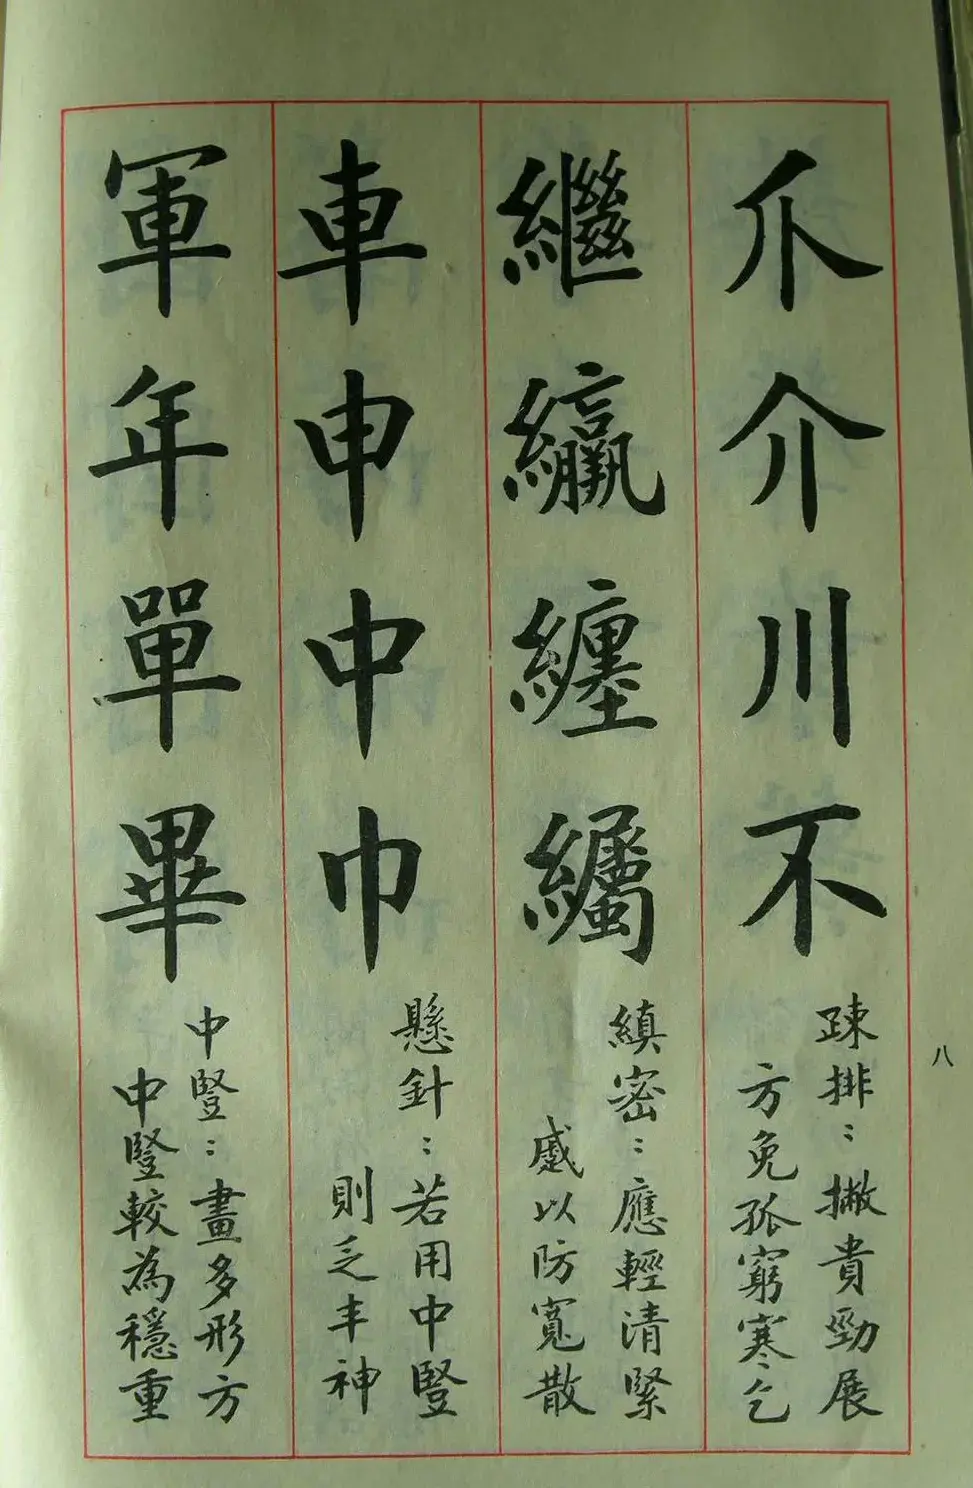 爪介川不
疎排：撇貴勁展
方免孤窮寒乞
繼纙纏纗
縝密：應輕清緊
蹙以防寬散
車申中巾
懸針：若用中豎
則乏丰神
軍年單畢
中豎：畫多形方
中豎較為穩重
八